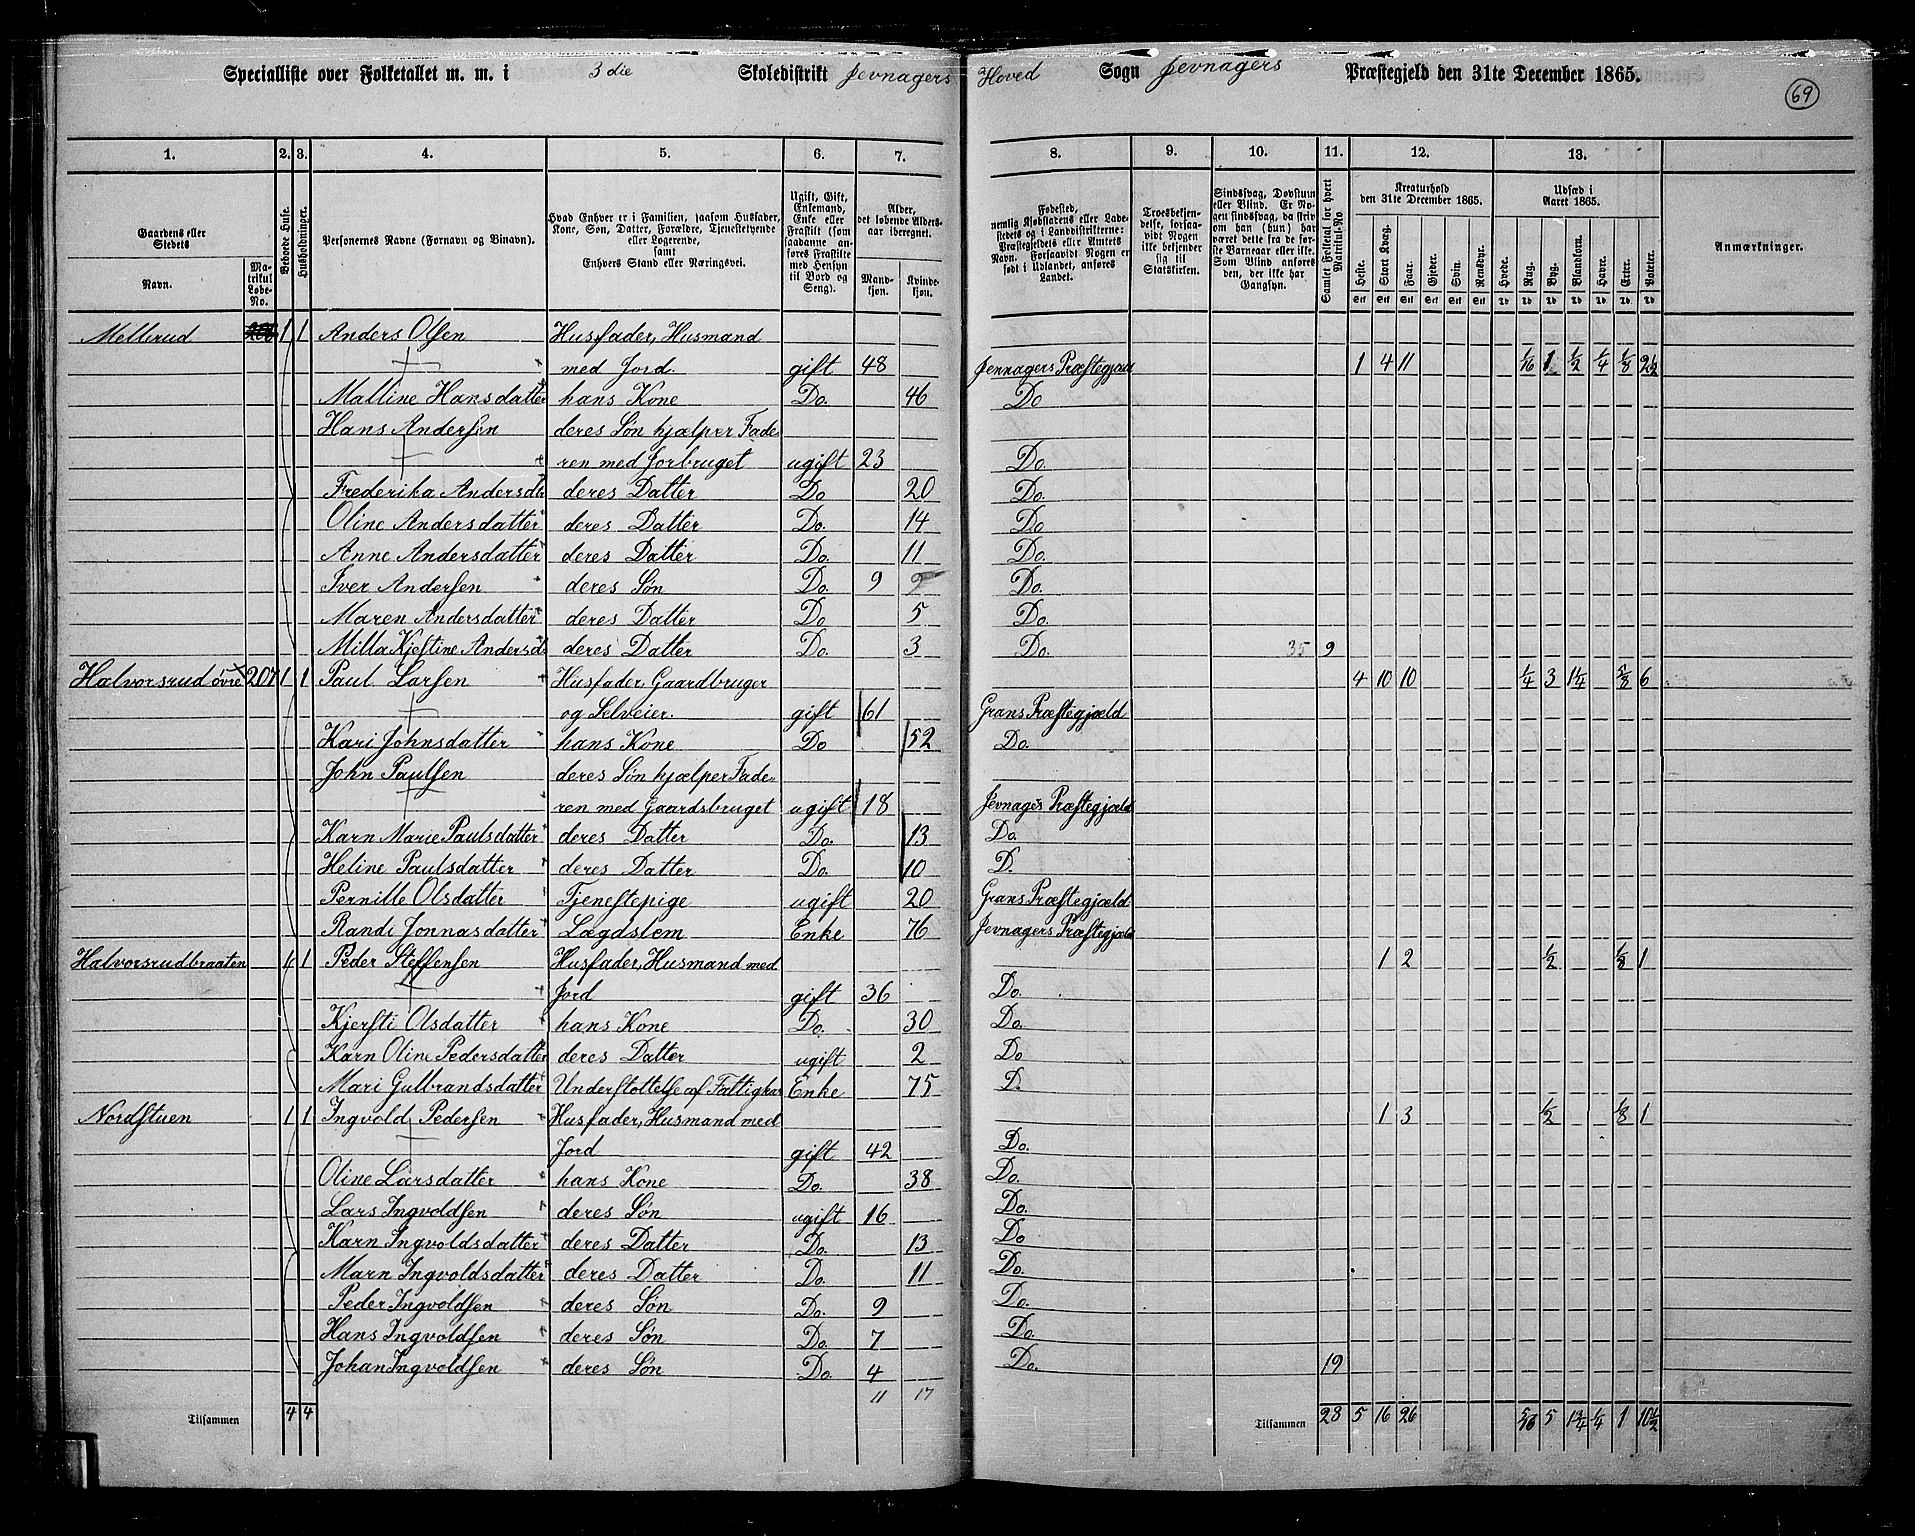 Specialliste over Folketallet m. m. i 3die Skoledistrikt Jevnagers Hoved Sogn Jevnagers Præstegjeld den 31te December 1865.
69
1. 2. 3. 4. 5. 6. 7. 8. 9. 10. 11. 12. 13.
Gaardens eller Stedets
Navn.
Matrikul Løbe-No.
Beboede Huse.
Husholdninger.
Personernes Navne (Fornavn og Binavn).
Hvad Enhver er i Familien, saasom Husfader, Kone, Søn, Datter, Forældre, Tjenestetyende eller Logerende, samt Enhvers Stand eller Næringsvei.
Ugift, Gift, Enkemand, Enke eller Fraskilt (som saadanne anføres Fraskilte med Hensyn til Bord og Seng).
Alder, det løbende Alders-aar iberegnet.
Mandkjøn. Kvindekjøn.
Fødested, nemlig Kjøbstadens eller Ladestedets og i Landdistrikterne: Præstegjeldets eller Amtets Navn. Forsaavidt Nogen er født i Udlandet, anføres Landet.
Troesbekjendelse, forsaavidt Nogen ikke bekjender sig til Statskirken.
Sindssvag, Døvstum eller Blind. Er Nogen sindssvag, da skriv om han (hun) har været dette fra de første Barneaar eller ikke. Som Blind anføres den, der ikke har Gangsyn.
Samlet Folketal for hvert Matrikul-No
Kreaturhold den 31te December 1865.
Heste. Stort Kvæg. Faar. Gjeder. Svin. Rensdyr.
Udsæd i Aaret 1865.
Hvede. Rug. Byg. Blandkorn. Havre. Erter. Poteter.
Anmærkninger.
Mellerud 1 1 Anders Olsen Husfader, Husmand
med Jord. gift 48 Jevnagers Præstegjæld 1 4 11 1/16 1 1/2 1/4 1/8 2 1/2
Malline Hansdatter hans Kone Do. 46 Do
Hans Andersen deres Søn hjælper Fade
ren med Jorbruget ugift 23 Do.
Frederika Andersdtr deres Datter Do 20 Do.
Oline Andersdatter deres Datter Do. 14 Do
Anne Andersdatter deres Datter Do. 11 Do.
Iver Andersen deres Søn Do. 9 9 Do.
Maren Andersdatter deres Datter Do 5 Do.
Milla Kjestine Andersd deres Datter Do. 3 Do. 35 9
Halvorsrud øvre 207 1 1 Paul Larsen Husfader, Gaardbruger 4 10 10 1/4 3 1 1/4 5/8 6
og Selveier. gift 61 Grans Præstegjæld
Kari Johnsdatter hans Kone Do 52 Do.
John Paulsen deres Søn hjælper Fade
ren med Gaardsbruget ugift 18 Jevnagers Præstegjæld
Karn Marie Paulsdatter deres Datter Do. 13 Do.
Heline Paulsdatter deres Datter Do. 10 D.
Pernille Olsdatter Tjenestepige ugift 20 Grans Præstegjæld
Randi Jonnasdatter Lægdslem Enke 76 Jevnagers Præstegjæld
Halvorsrudbraaten 1 1 Peder Steffensen Husfader, Husmand med 1 2 1/2 1/8 1
Jord gift 36 Do.
Kjersti Olsdatter hans Kone Do. 30 Do.
Karn Oline Pedersdatter deres Datter ugift 2 Do
Mari Gulbrandsdatter Understøttelse af Fattigkas Enke 75 D.
Nordstuen 1 1 Ingvold Pedersen Husfader, Husmand med 1 3 1/2 1/8 1
Jord gift 42 Do.
Oline Larsdatter hans Kone Do. 38 Do.
Lars Ingvoldsen deres Søn ugift 16 Do.
Karn Ingvoldsdatter deres Datter Do. 13 Do
Marn Ingvoldsdatter deres Datter Do. 11 Do.
Peder Ingvoldsen deres Søn Do. 9 Do.
Hans Ingvoldsen deres Søn Do. 7 Do.
Johan Ingvoldsen deres Søn Do. 4 Do. 19
11 17
Tilsammen 4 4 Tilsammen 28 5 16 26 5/16 5 1 3/4 1/4 1 10 1/2